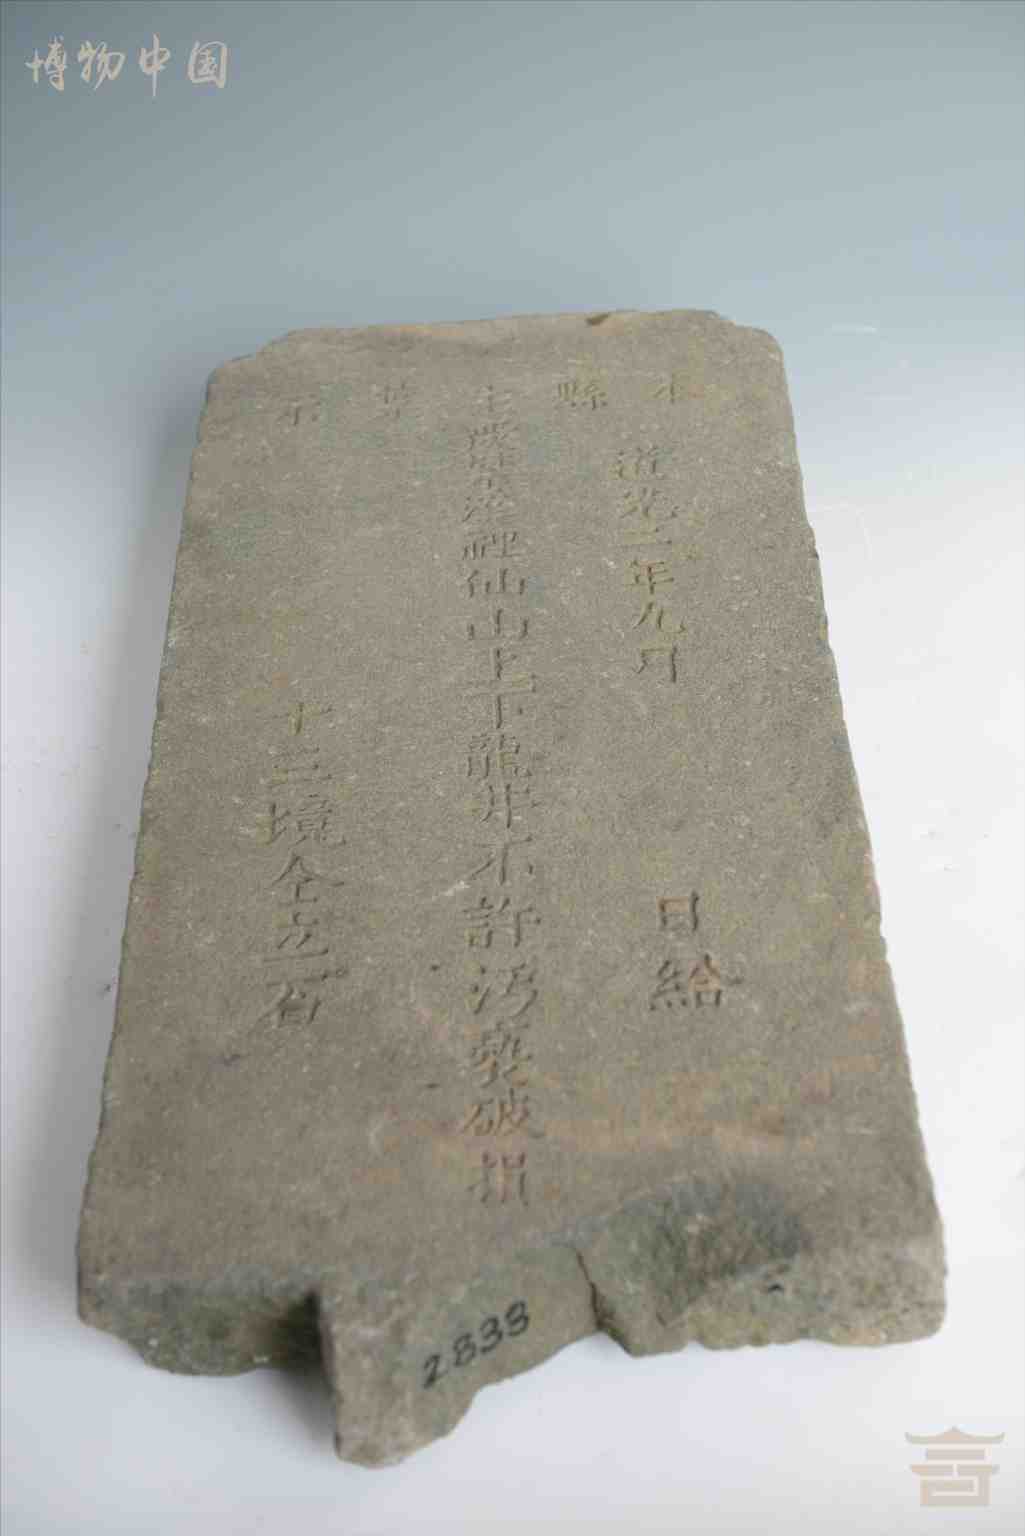 博物中国
本縣主葉示
道光二年九月 日給
裡仙山上下龍井不許污褻破損
十三境仝立石
2838